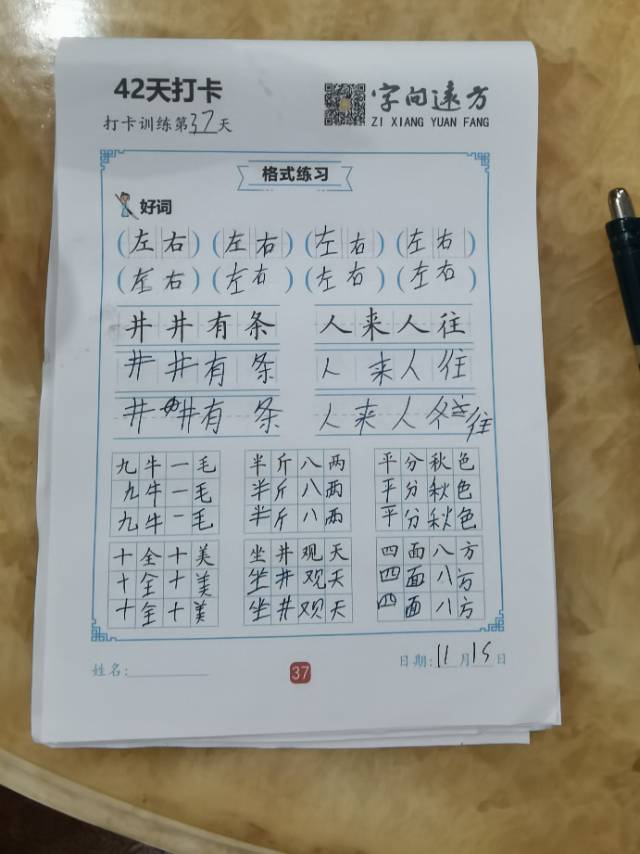 42天打卡
打卡训练第37天
字向远方
ZI XIANG YUAN FANG
格式练习
好词
(左右) (左右) (左右) (左右)
(左右) (左右) (左右) (左右)
井井有条 人来人往
井井有条 人来人往
井井有条 人来人往
九牛一毛 半斤八两 平分秋色
九牛一毛 半斤八两 平分秋色
九牛一毛 半斤八两 平分秋色
十全十美 坐井观天 四面八方
十全十美 坐井观天 四面八方
十全十美 坐井观天 四面八方
姓名:
37
日期:11月15日